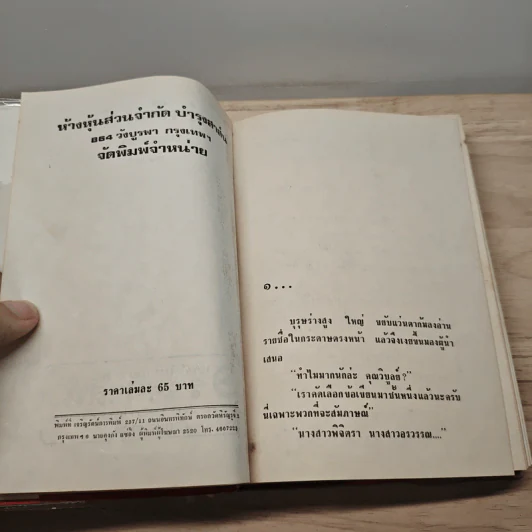 ห้างหุ้นส่วนจำกัด บำรุงสาส์น
864 วังบูรพา กรุงเทพฯ
จัดพิมพ์จำหน่าย
ราคาเล่มละ 65 บาท
พิมพ์ที่ เจริญรัตน์การพิมพ์
กรุงเทพฯ 2520 โทร.
๑...
บุรุษร่างสูง ใหญ่ ขยับแว่นตาก้มลงอ่าน
รายชื่อในกระดาษตรงหน้า แล้วจึงเงยขึ้นมองผู้นำ
เสนอ
"ทำไมมากนักล่ะ คุณวิบูลย์?"
"เราคัดเลือกข้อเขียนมาชั้นหนึ่งแล้วนะครับ
นี่เฉพาะพวกที่จะสัมภาษณ์"
"นางสาวพิจิตรา นางสาวอรวรรณ...."